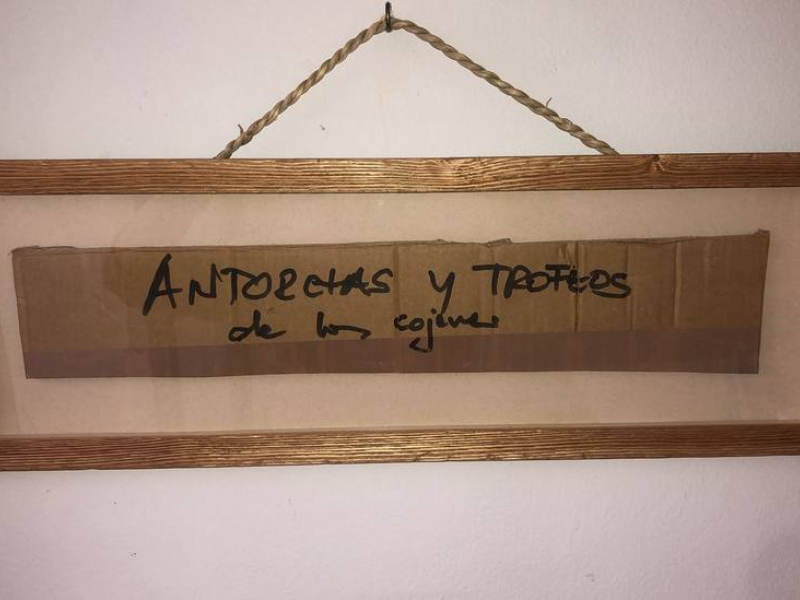 ANTORCHAS Y TROFEOS
de los cojones